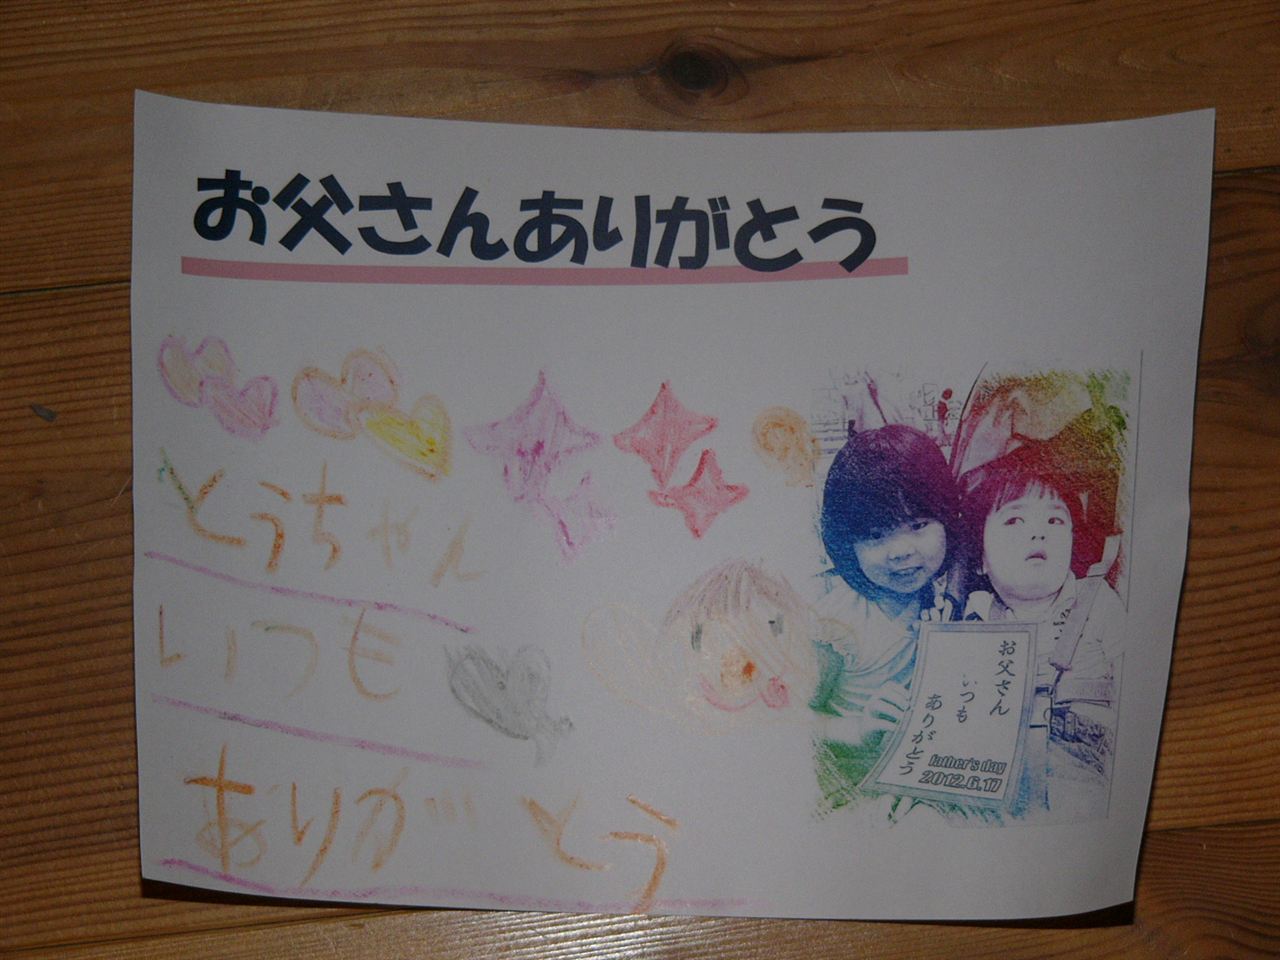 お父さんありがとう
とうちゃん
いつも
ありがとう
お父さん
いつも
ありがとう
father's day
2012.6.17